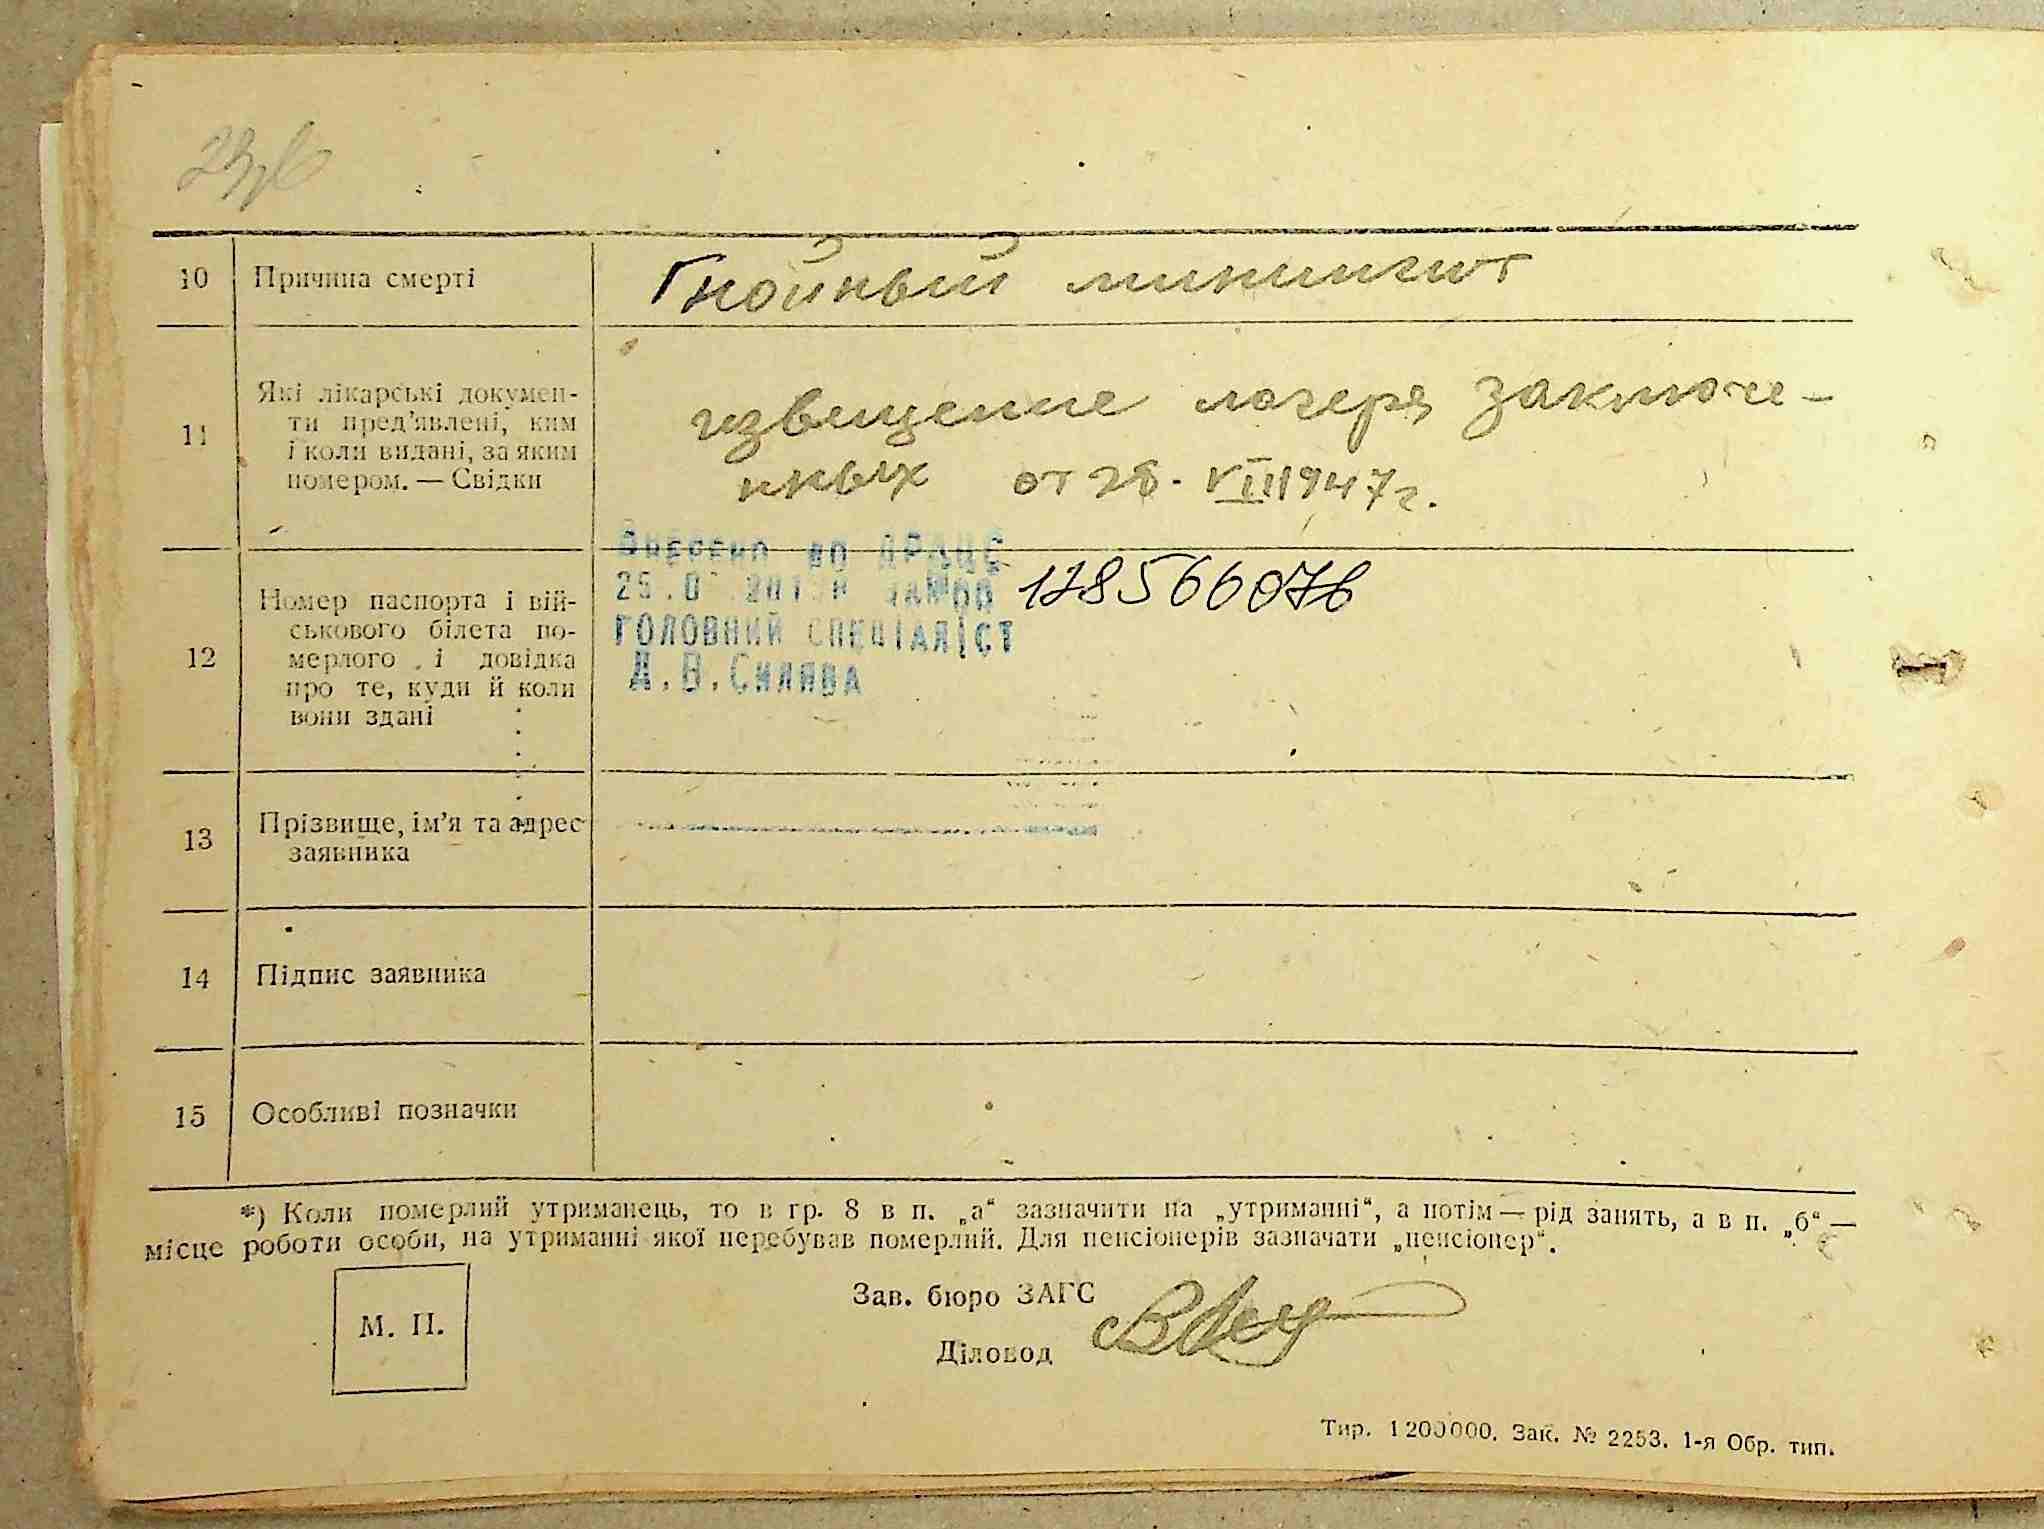 10 Причина смерті Гнойный минингит
11 Які лікарські докумен-
ти пред’явлені, ким
і коли видані, за яким
номером. — Свідки
извещение лагеря заключе-
нных от 26. VIII 1947 г.
12 Номер паспорта і вій-
ськового білета по-
мерлого і довідка
про те, куди й коли
вони здані
Внесено до ДРАЦС
178566076
Головний спеціаліст
Д.В.Силява
13 Прізвище, ім’я та адрес
заявника
14 Підпис заявника
15 Особливі позначки
*) Коли померлий утриманець, то в гр. 8 в п. „а“ зазначити на „утриманні“, а потім — рід занять, а в п. „б“ —
місце роботи особи, на утриманні якої перебував померлий. Для пенсіонерів зазначати „пенсіонер“.
М. П.
Зав. бюро ЗАГС
Діловод
Тир. 1200000. Зак. № 2253. 1-я Обр. тип.